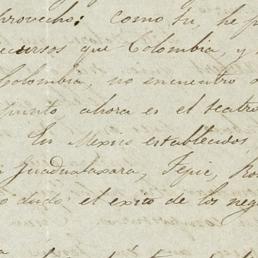 aprovecho: como tu, he p
recursos que Colombia, y
Colombia, no encuentro o
punto ahora es el teatro
En Mexico establecidos
Guadalaxara, Tepic, Ro
dudo el exito de los neg